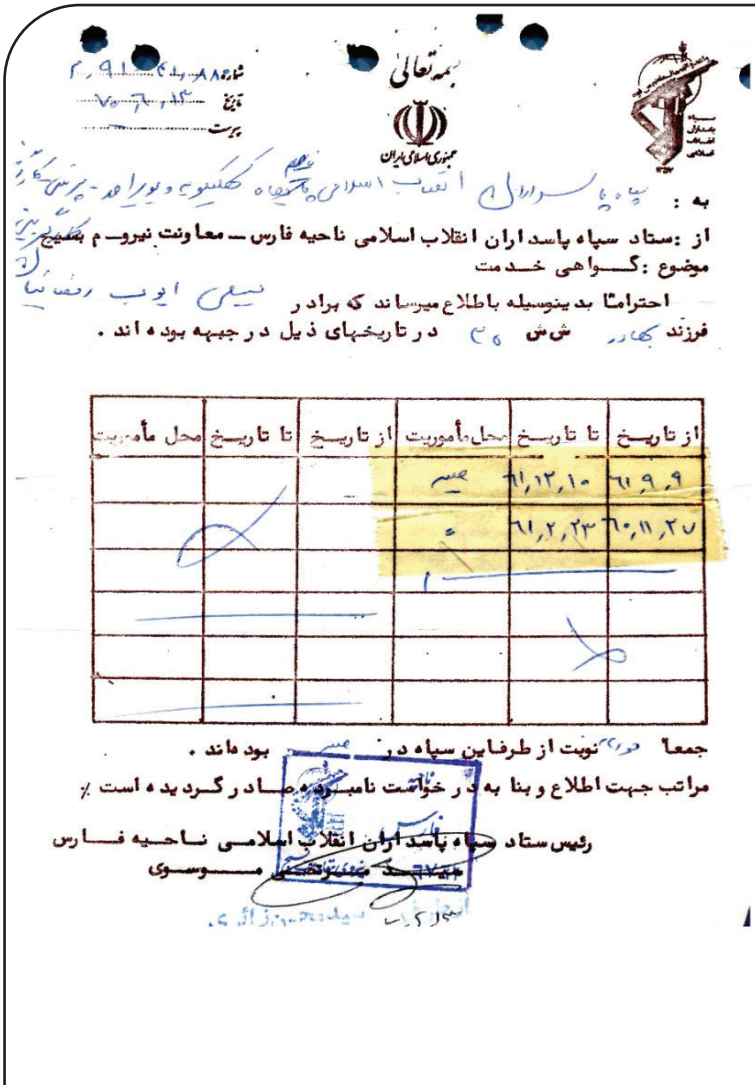 بسمه تعالی
جمهوری اسلامی ایران
سپاه پاسداران انقلاب اسلامی
شماره ۲٫۹۱ ۴۱٫۸۸
تاریخ ۷۰٫۶٫۱۳
پیوست
به : سپاه پاسداران انقلاب اسلامی کهکیلویه و بویراحمد - پرسنلی
از :ستاد سپاه پاسداران انقلاب اسلامی ناحیه فارس ــ معاونت نیروـ م بسیج
موضوع :گــواهی خــدمت
احتراماً بدینوسیله باطلاع میرساند که برادر ایوب
فرزند بهادر ش ش در تاریخهای ذیل در جبهه بوده اند .
از تاریــخ تا تاریــخ محل مأموریت از تاریــخ تا تاریــخ محل مأموریت
۶۱٫۹٫۹ ۶۱٫۱۲٫۱۰
۶۰٫۱۱٫۲۷ ۶۱٫۲٫۲۳ =
جمعاً نوبت از طرف این سپاه در بوده اند .
مراتب جهت اطلاع و بنا به در خواست نامبـرده صــادر گــردیده است ٪
رئیس ستاد سپاه پاسداران انقلاب اسلامــی نــاحـیه فــارس
سیــد مــرتضــی مــوسـوی
فارس
سیدمحسن زائری